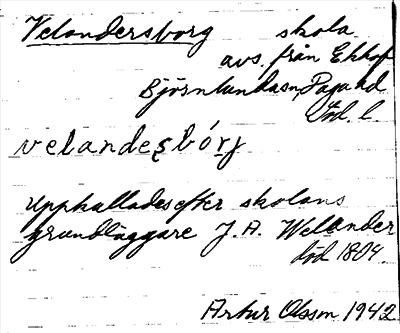 Velandersborg skola
avs. från Ekhof
Björnlundasn, Daga hd
Söd. l.
velandeʂbórj
Upphallades efter skolans
grundläggare J. A. Welander
död 1804.
Artur Olsson 1942